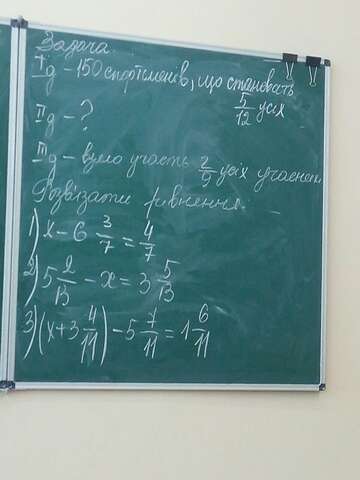 Задача.
I д – 150 спортсменів, що становить
5/12 усіх
II д – ?
III д – взяло участь 2/9 усіх учасників
Розв'язати рівняння.
1) x – 6 3/7 = 4/7
2) 5 2/13 – x = 3 5/13
3) (x + 3 4/11) – 5 7/11 = 1 6/11